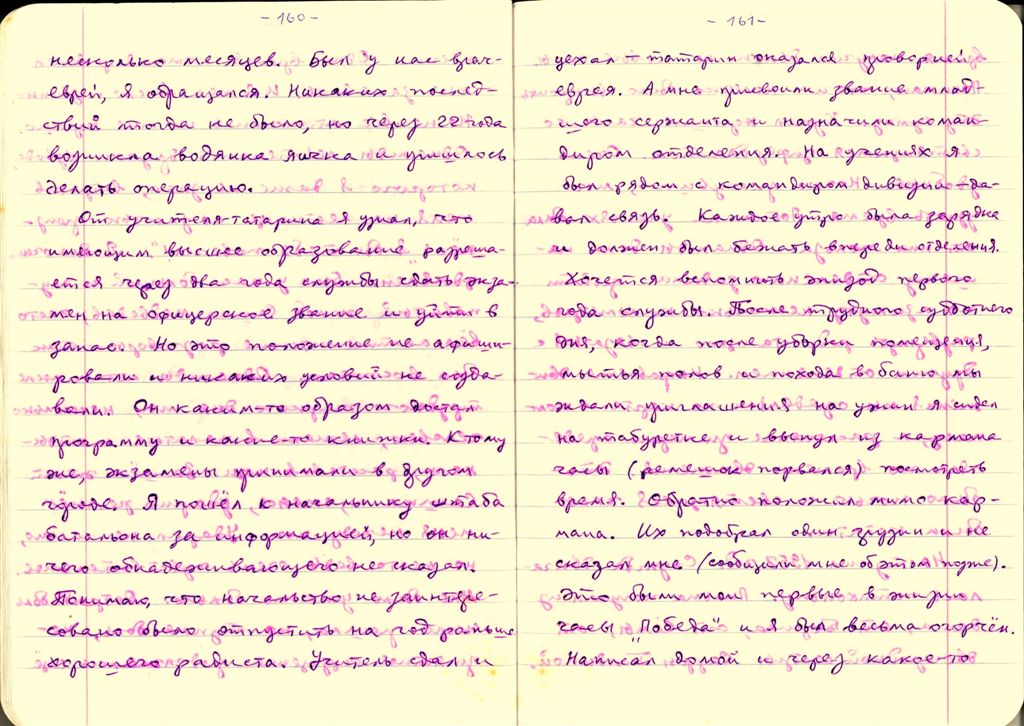 - 160 -
несколько месяцев. Был у нас врач-
еврей, я обращался. Никаких послед-
ствий тогда не было, но через 22 года
возникла водянка яичка и пришлось
делать операцию.
От учителя-татарина я узнал, что
имеющим высшее образование разреша-
ется через два года службы сдать экза-
мен на офицерское звание и уйти в
запас. Но это положение не афиши-
ровали и никаких условий не созда-
вали. Он каким-то образом достал
программу и какие-то книжки. К тому
же, экзамены принимали в другом
городе. Я пошёл к начальнику штаба
батальона за информацией, но он ни-
чего обнадёживающего не сказал.
Понимаю, что начальство не заинтере-
совано было отпустить на год раньше
хорошего радиста. Учитель сдал и
- 161 -
уехал - татарин оказался проворней
еврея. А мне присвоили звание млад-
шего сержанта и назначили коман-
диром отделения. На учениях я
был рядом с командиром дивизии - да-
вал связь. Каждое утро была зарядка
и должен был бежать впереди отделения.
Хочется вспомнить эпизод первого
года службы. После трудного субботнего
дня, когда после уборки помещения,
мытья полов и похода в баню мы
ждали приглашения на ужин я сидел
на табуретке и вынул из кармана
часы (ремешок порвался) посмотреть
время. Обратно положил мимо кар-
мана. Их подобрал один грузин и не
сказал мне (сообщили мне об этом позже).
Это были мои первые в жизни
часы "Победа" и я был весьма огорчён.
Написал домой и через какое-то